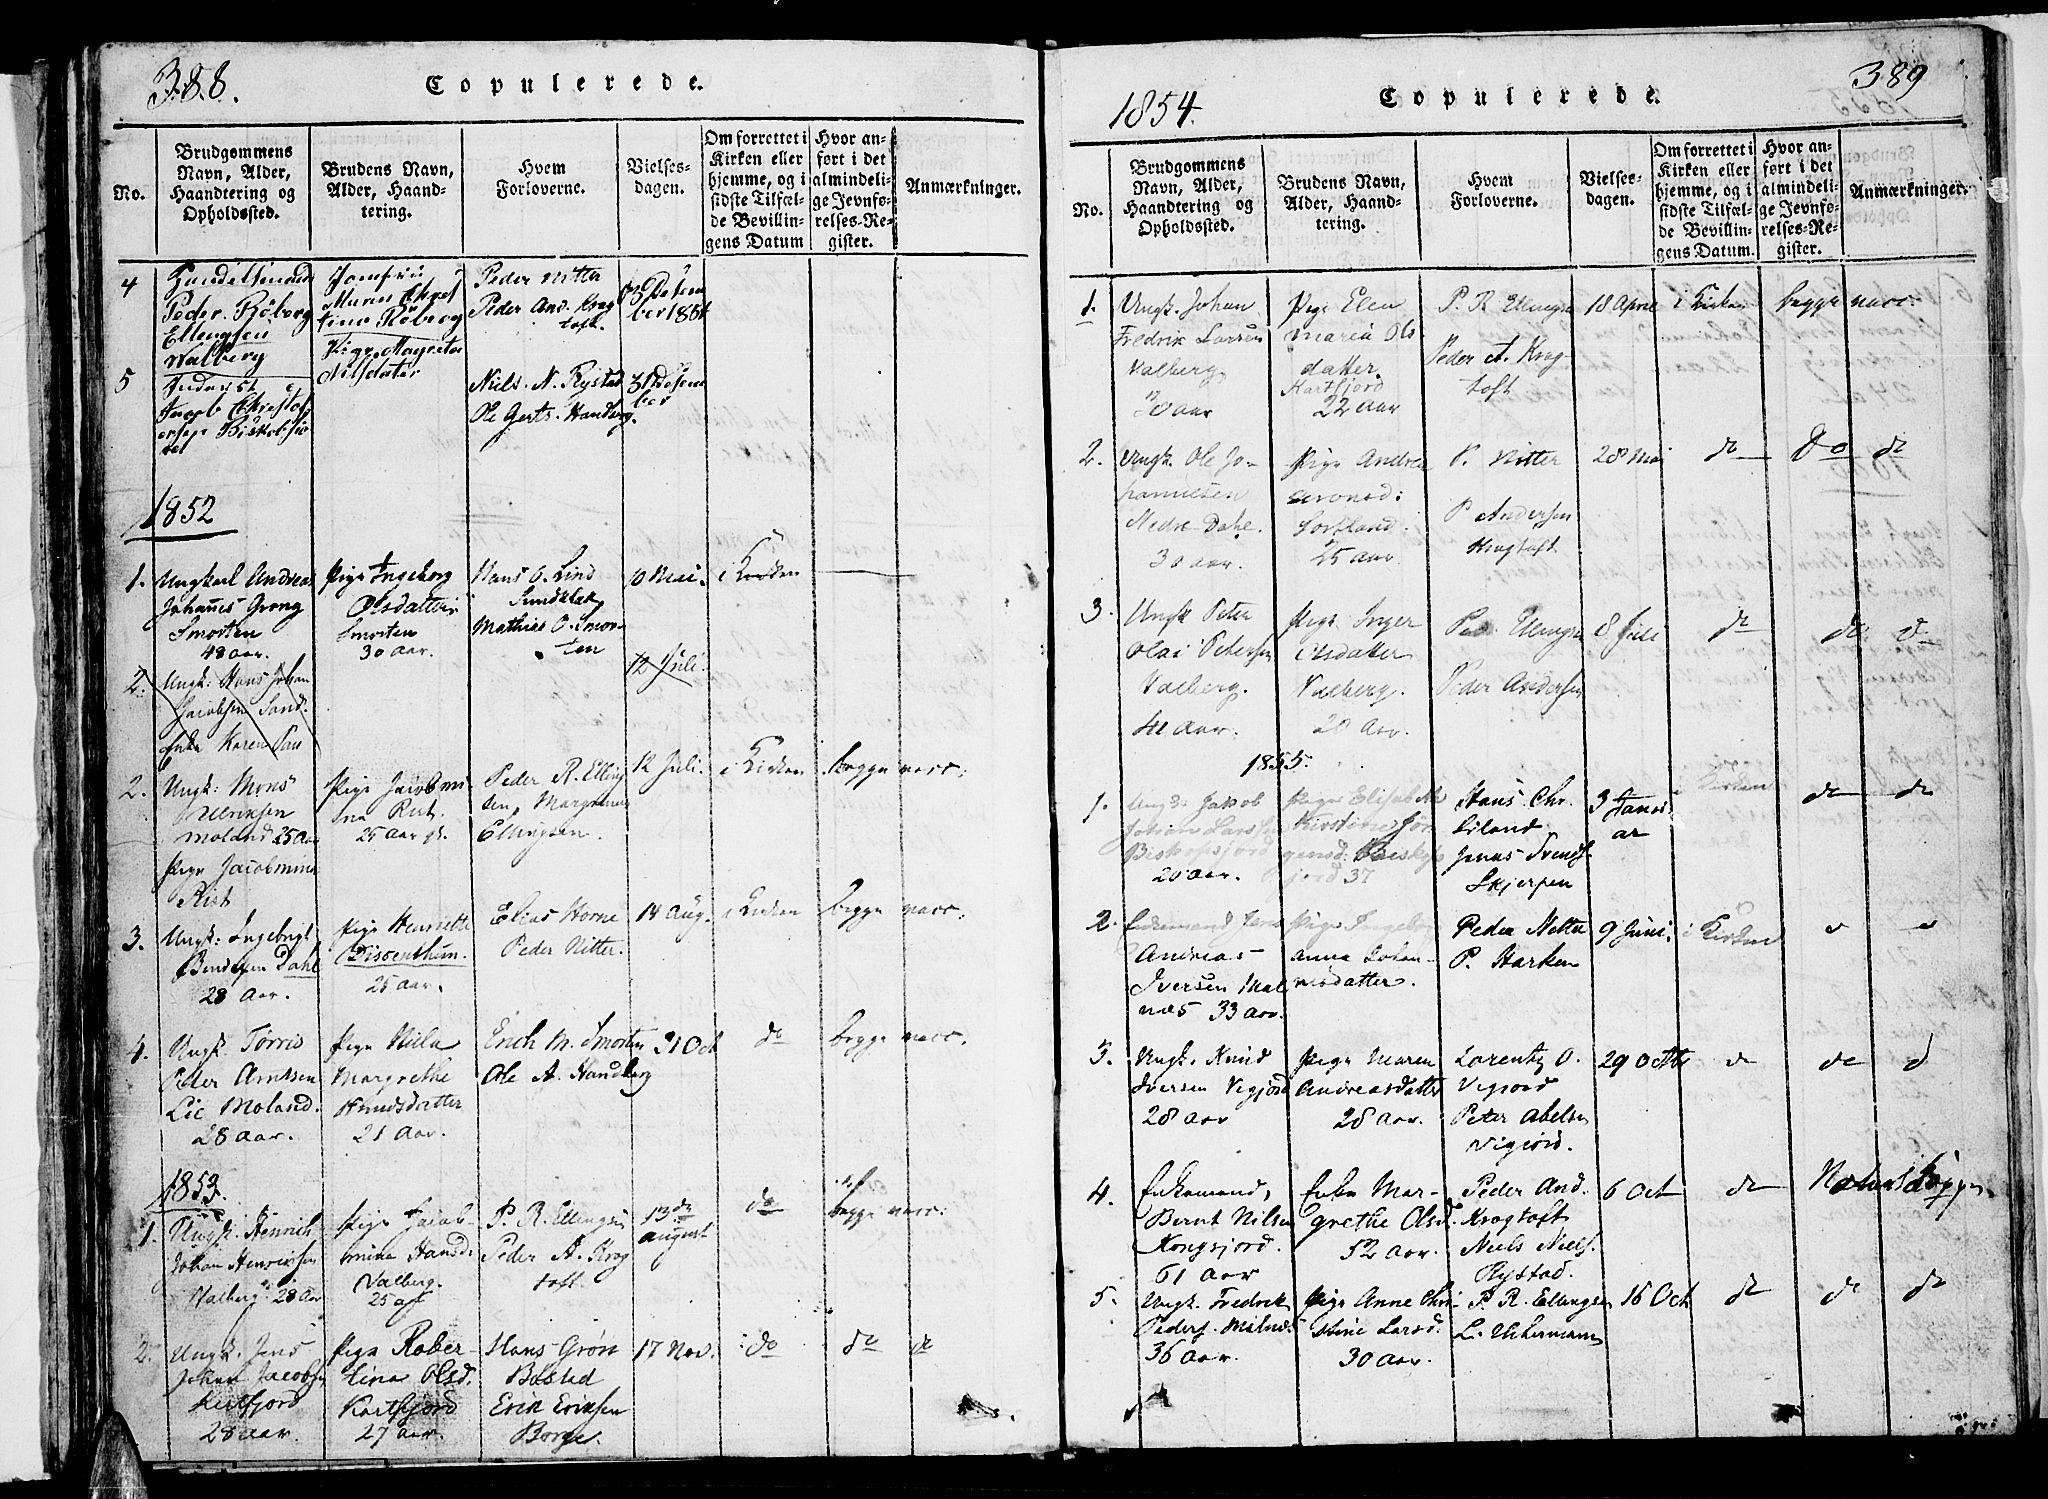 388.
Copulerede.
No.
Brudgommens
Navn, Alder,
Haandtering og
Opholdssted.
Brudens Navn,
Alder, Haand-
tering.
Hvem
Forloverne.
Vielses-
dagen.
Om forrettet i
Kirken eller
hjemme, og i
sidste Tilfæl-
de Bevillin-
gens Datum
Hvor an-
ført i det
almindeli-
ge Jevnfø-
relses-Re-
gister.
Anmærkninger.
4
Peder Röberg
Ellingsen
Walberg
Jomfru
Maren Chris
tine Röberg
Peder Nitter
Peder And. Krog
toft.
5
Jacob Christof
ersen
Pige Magreta
Nilsdater
Niels. N. Rystad
Ole Gerts. Handberg.
31 Desem
ber
1852
1.
Ungkarl Andreas
Johannes Grong
Smorten
48 aar.
Pige Ingeborg
Olsdatter
Smorten
30 aar.
Hans O. Lind
Sundklak
Mathias O. Smor-
ten
10 Mai.
i Kirken
2.
Ungk: Hans Johan
Jacobsen Sand.
Enke Karen
12 Juli.
2.
Ungk: Mons
Ulriksen
Moland 25 Aar
Pige Jacobmina
Rist
Pige Jacobmi-
na Rist.
25 Aar gl.
Peder R. Elling
sen, Margrenus
Ellingsen.
12 Juli.
i Kirken
begge vacc:
3.
Ungk: Ingebrigt
Bendixen Dahl
28 Aar.
Pige Henrette
Dissenthun.
25 aar.
Elias Horne
Peder Nitter.
14 Aug.
i Kirken
begge vacc:
4.
Ungk. Törris
Peter Arntsen
Lic Moland.
28 Aar.
Pige Nicla
Margrethe
Knudsdatter
21 Aar.
Erich M. Smorten
Ole A. Handberg
31 Oct
do
begge vacc.
1853.
1.
Ungk. Henrich
Johan Henricksen
Valberg 28 Aar
Pige Jacob-
mine Hansd:
Valberg.
25 a
P. R. Ellingsen
Peder A. Krog
toft.
13de
august
do
begge vacc:
2.
Ungk. Jens
Johan Jacobsen
Kartfjord
28 aar.
Pige Rober-
tina Olsd.
Kartfjord
27 aar.
Hans Grön
Bøstad
Erik Eriksen
Borge.
17 Nov.
do
do
do
389
1854.
Copulerede.
No.
Brudgommens
Navn, Alder,
Haandtering og
Opholdssted.
Brudens Navn,
Alder, Haand-
tering.
Hvem
Forloverne.
Vielses-
dagen.
Om forrettet i
Kirken eller
hjemme, og i
sidste Tilfæl-
de Bevillin-
gens Datum.
Hvor an-
ført i det
almindeli-
ge Jevnfø-
relses-Re-
gister.
Anmærkninger.
1.
Ungk. Johan
Fredrik Larsen
Valberg
Pige Elen
Maria Ols
datter
Kartfjord
22 Aar
P. R Ellingsen
Peder A. Krog-
toft
18 April
i Kirken
begge vacc.
2.
Ungk. Ole Jo-
hannesen
Nedre Dahl.
30 aar.
Pige Andrea
Aronsd:
Sortland.
25 aar.
P. Nitter
P Andersen
Krogtoft
28 Mai
do
Do
do
3.
Ungk Peter
Olai Petersen
Valberg.
41 Aar.
Pige Inger
Olsdatter
Valberg.
20 Aar.
Ped. Ellingsen
Peder Andersen
8 Juli
do
do
do
1855.
1.
Ungk: Jakob
Johan Larsen
Biskopsjord
20 aar.
Pige Elisabeth
Kirstine Jör-
gensd: Biskops
jord 37
Hans Chr.
Liland
Jonas Svends.
Skjerpen
3 Janu-
ar
i Kirken
do
do
2.
Enkemand Jens
Andreas
Iversen Mal
nes 33 aar.
Pige Ingeborg
Anna Johan-
nisdatter.
Peder Netter
P. Harken
9 Juni.
i Kirken
3.
Ungk. Knud
Iversen Vigjord
28 aar
Pige Maren
Andreasdatter
28 Aar.
Lorentz O.
Vigjord
Peter Abelsen
Vigjord.
29 Octbr
do
do
d
4.
Enkemand,
Bernt Nilsen
Kongsjord.
61 Aar
Enke Mar-
grethe Olsd.
52 Aar.
Peder And.
Krogtoft
Niels Niels.
Rystad.
6 Oct
do
5.
Ungk. Fredrik
Peders. Malnes.
36 aar.
Pige Anne Chri
stine Larsd.
30 Aar.
P. R. Ellingsen
L. Ukermann
16 Oct
do
do
do